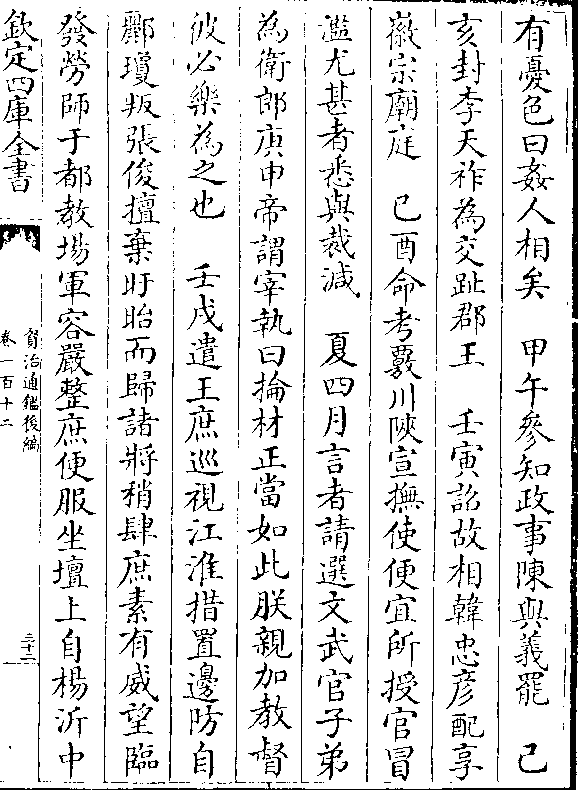 有憂色曰姦人相矣　甲午參知政事陳與義罷　己
亥封李天祚為交趾郡王　壬寅詔故相韓忠彥配享
徽宗廟庭　己酉命考覈川陜宣撫使便宜所授官冒
濫尤甚者悉與裁減　夏四月言者請選文武官子弟
為衛郎庚申帝謂宰執曰掄材正當如此朕親加教督
彼必樂為之也　壬戌遣王庶巡視江淮措置邊防自
酈瓊叛張俊擅棄盱眙而歸諸將稍肆庶素有威望臨
發勞師于都教場軍容嚴整庶便服坐壇上自楊沂中
欽定四庫全書
資治通鑑後編
卷一百十二
三十二